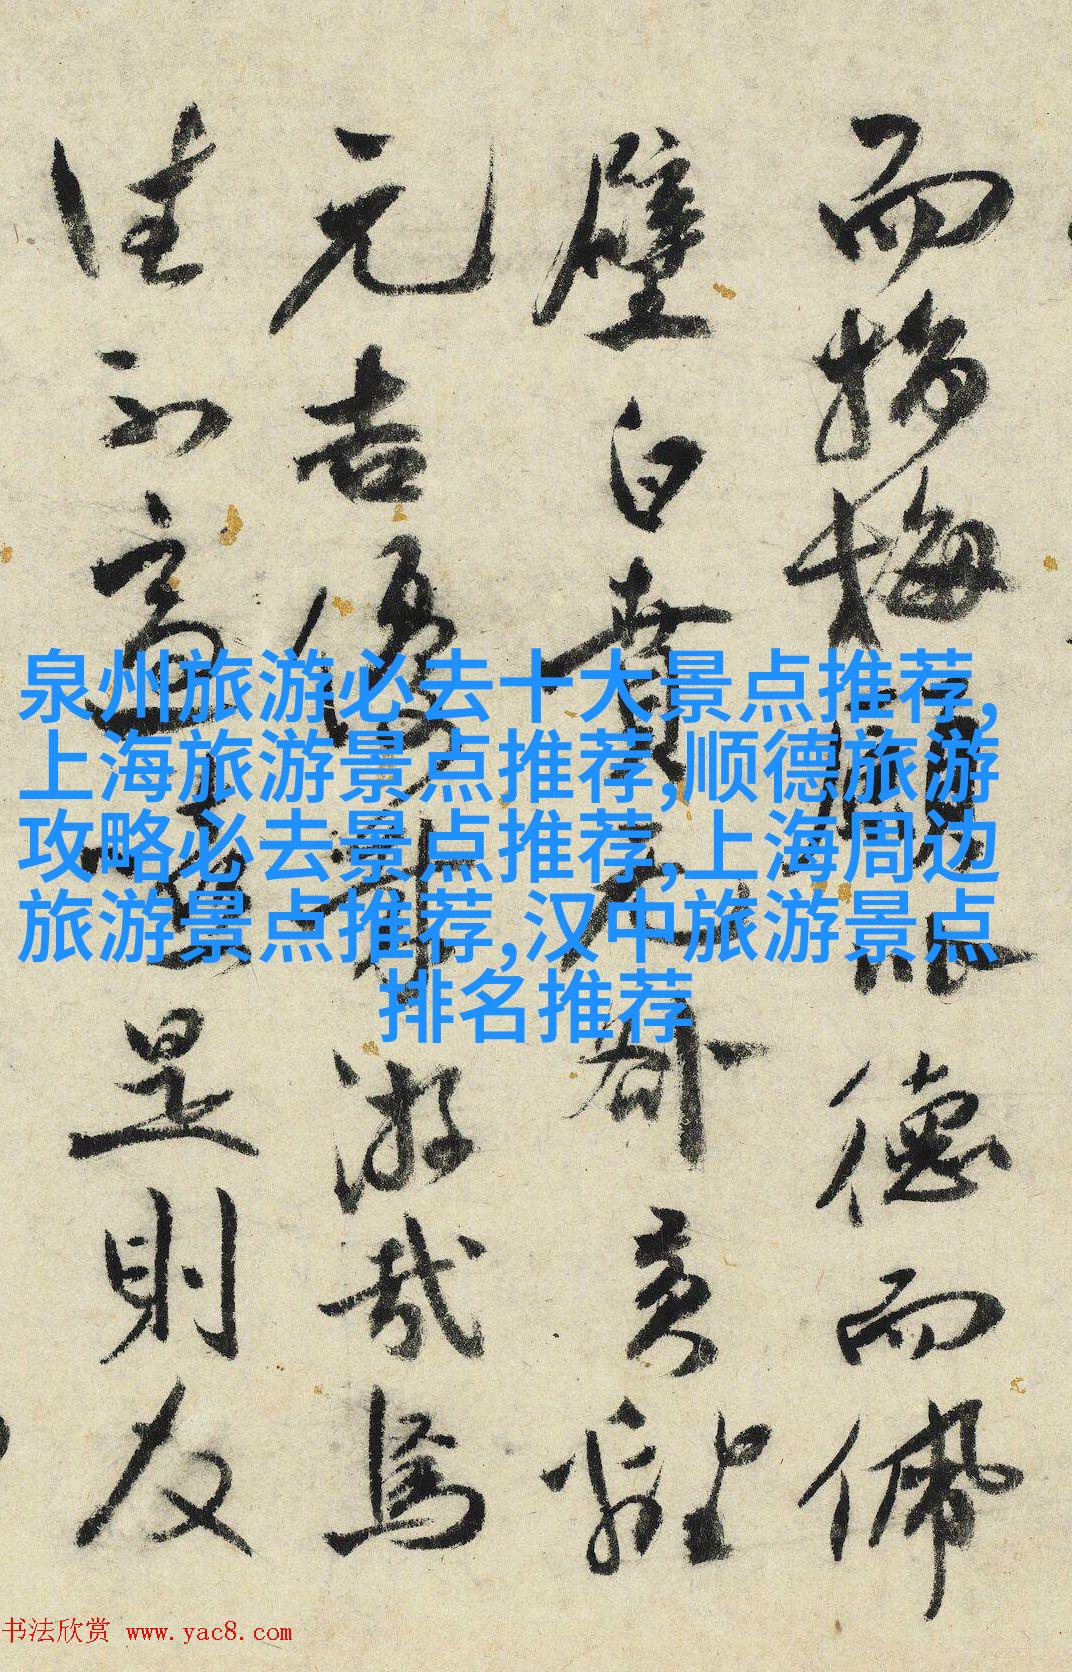 而梅德而佩
璧白賁无咎黄離
元吉優游哉焉
往不是則友
泉州旅游必去十大景点推荐,
上海旅游景点推荐,顺德旅游
攻略必去景点推荐,上海周边
旅游景点推荐,汉中旅游景点
排名推荐
书法欣赏 www.yac8.com